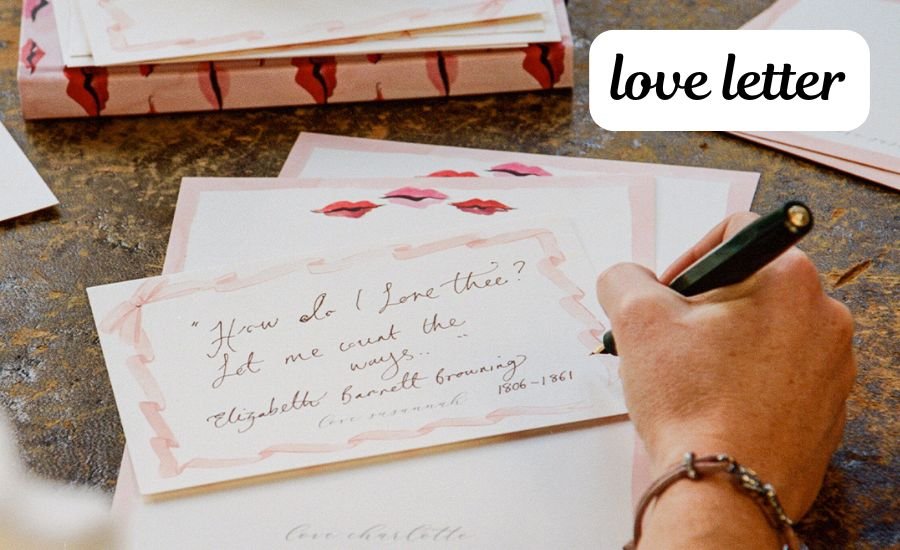 love letter
"How do I Love thee?
Let me count the
ways.."
Elizabeth Barrett Browning
1806-1861
love susannah
love charlotte